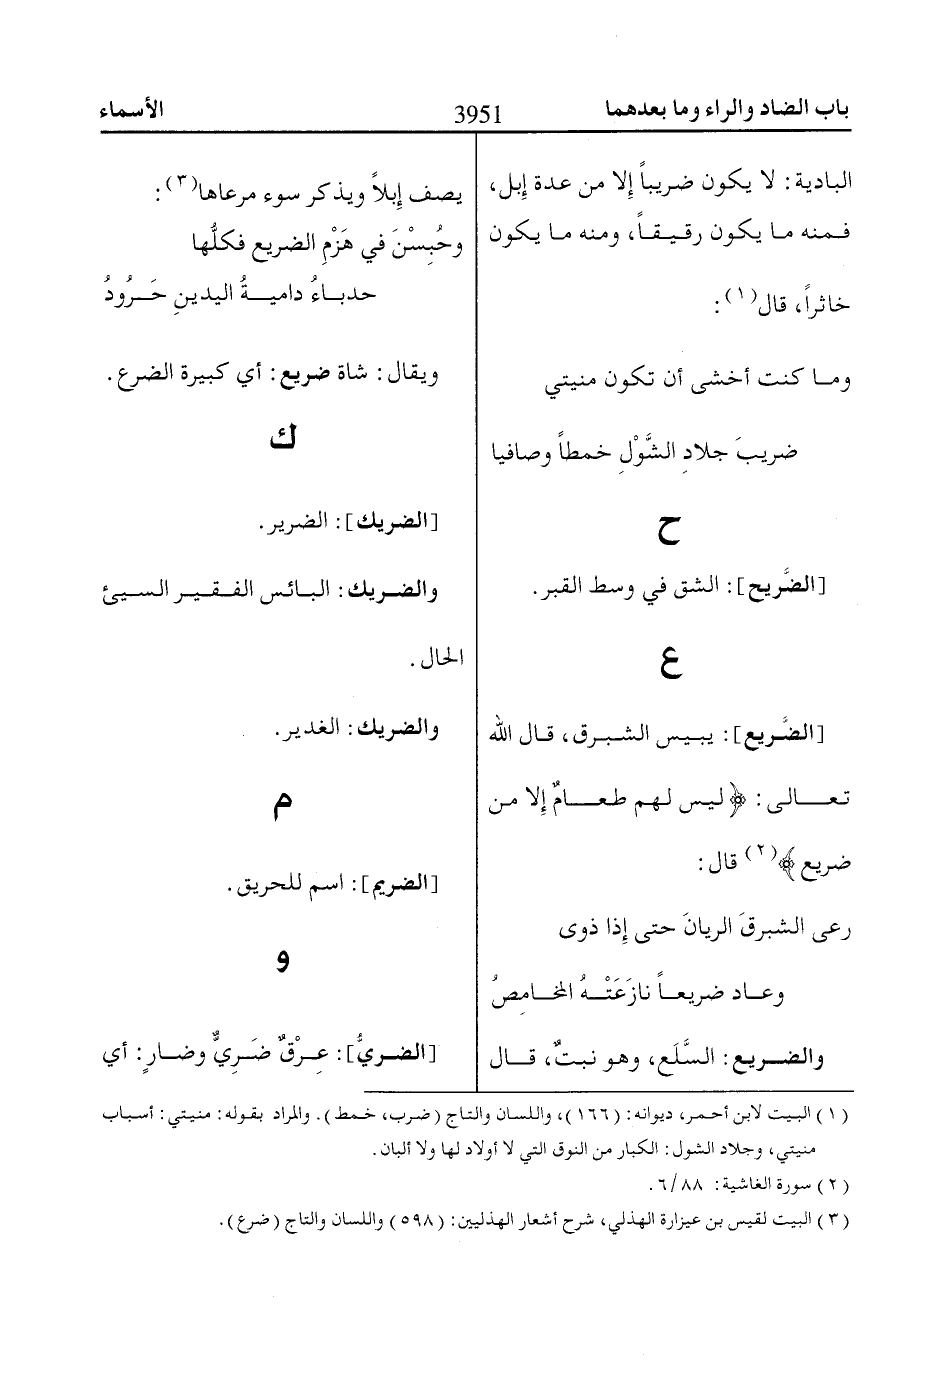 باب الضاد والراء وما بعدهما
3951
الأسماء
البادية: لا يكون ضريباً إلا من عدة إبل،
فمنه ما يكون رقيقاً، ومنه ما يكون
خاثراً، قال(١):
وما كنت أخشى أن تكون منيتي
ضريبَ جلادِ الشَّوْلِ خمطاً وصافيا
ح
[الضَّريح]: الشق في وسط القبر.
ع
[الضَّريع]: يبيس الشبرق، قال الله
تعالى: ﴿ليس لهم طعامٌ إلا من
ضريع﴾(٢) قال:
رعى الشبرقَ الريانَ حتى إذا ذوى
وعاد ضريعاً نازَعَتْهُ المخامِصُ
والضريع: السَّلَع، وهو نبتٌ، قال
يصف إبلاً ويذكر سوء مرعاها(٣):
وحُبِسْنَ في هَزْمِ الضريع فكلُّها
حدباءُ داميةُ اليدينِ حَرُودُ
ويقال: شاة ضريع: أي كبيرة الضرع.
ك
[الضريك]: الضرير.
والضريك: البائس الفقير السيئ
الحال.
والضريك: الغدير.
م
[الضريم]: اسم للحريق.
و
[الضريُّ]: عِرْقٌ ضَرِيٌّ وضارٍ: أي
(١) البيت لابن أحمر، ديوانه: (١٦٦)، واللسان والتاج (ضرب، خمط). والمراد بقوله: منيتي: أسباب
منيتي، وجلاد الشول: الكبار من النوق التي لا أولاد لها ولا ألبان.
(٢) سورة الغاشية: ٦/٨٨.
(٣) البيت لقيس بن عيزارة الهذلي، شرح أشعار الهذليين: (٥٩٨) واللسان والتاج (ضرع).